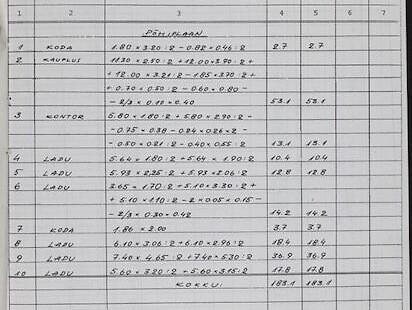 1 2 3 4 5 6 7
PÕHIPLAAN
1 KODA 1.80 × 3.20 : 2 - 0.82 × 0.46 : 2 2.7 2.7
2 KAUPLUS 11.30 × 2.50 : 2 + 12.00 × 3.70 : 2 +
+ 12.00 × 3.21 : 2 - 1.85 × 3.70 : 2 +
+ 0.70 × 0.50 : 2 - 0.60 × 0.80 -
- 2/3 × 0.10 × 0.40 53.1 53.1
3 KONTOR 5.80 × 1.80 : 2 + 5.80 × 2.90 : 2 -
- 0.75 × 0.38 - 0.24 × 0.26 × 2 -
- 0.50 × 0.21 : 2 - 0.40 × 0.55 : 2 13.1 13.1
4 LADU 5.64 × 1.80 : 2 + 5.64 × 1.90 : 2 10.4 10.4
5 LADU 5.93 × 2.25 : 2 + 5.93 × 2.06 : 2 12.8 12.8
6 LADU 3.65 × 1.70 : 2 + 5.10 × 3.30 : 2 +
+ 5.10 × 1.10 : 2 - 2 × 0.05 × 0.15 -
- 2/3 × 0.30 × 0.42 14.2 14.2
7 KODA 1.86 × 2.00 3.7 3.7
8 LADU 6.10 × 3.06 : 2 + 6.10 × 2.96 : 2 18.4 18.4
9 LADU 7.40 × 4.65 : 2 + 7.40 × 5.30 : 2 36.9 36.9
10 LADU 5.60 × 3.20 : 2 + 5.60 × 3.15 : 2 17.8 17.8
KOKKU: 183.1 183.1